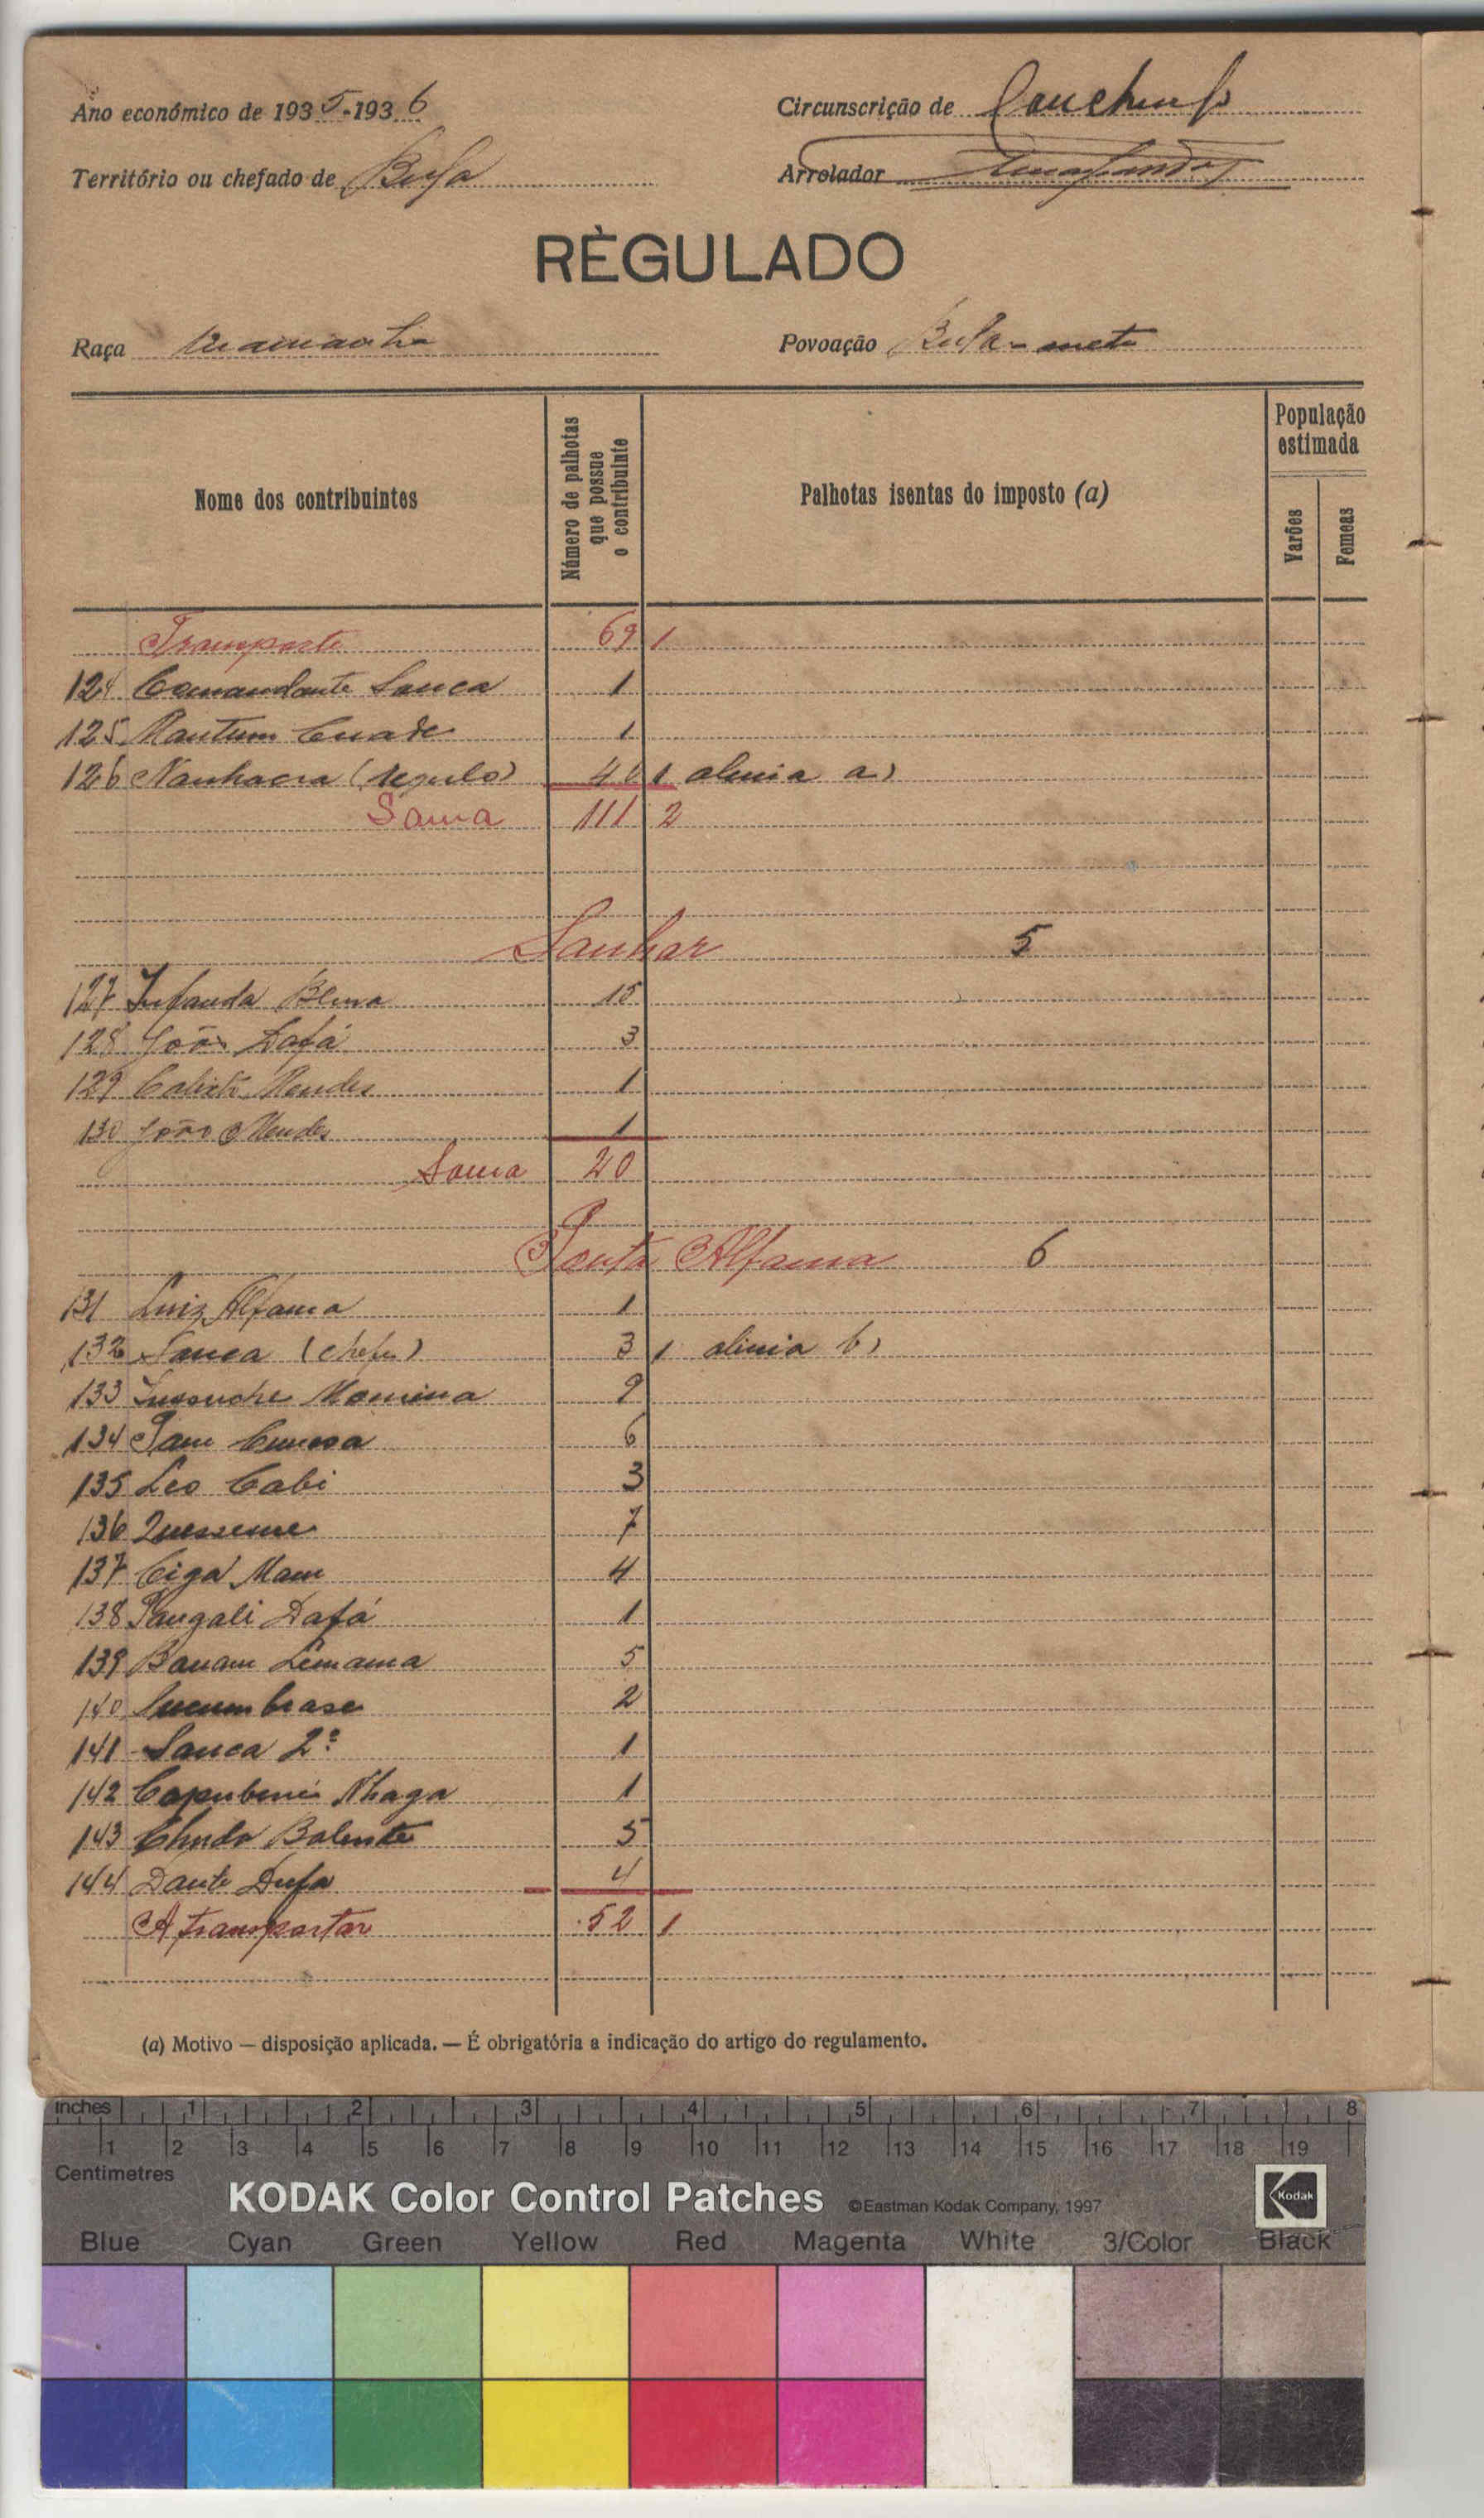 Ano económico de 1935-1936
Circunscrição de Canchungo
Território ou chefado de Bula
Arrolador
RÈGULADO
Raça
Povoação Bula-meto
Nome dos contribuintes
Número de palhotas que possue o contribuinte
Palhotas isentas do imposto (a)
População estimada
Varões
Femeas
Transporte 69 1
124 Comandante Sanca 1
125 Mantum Cuade 1
126 Nanhacra (regulo) 40 1 alinia a)
Soma 111 2
Sanhar 5
127 Infanda Blema 15
128 João Dafá 3
129 Mendes 1
130 João Mendes 1
Soma 20
Ponta Alfama 6
131 Luiz Alfama 1
132 Sanca (chefe) 3 1 alinia b)
133 Momina 9
134 6
135 Leo Cabi 3
136 7
137 Ciga Mam 4
138 Pangali Dafá 1
139 Banam 5
140 2
141 Sanca 2º 1
142 Nhaga 1
143 Chudo Balente 5
144 Dante Dufa 4
A transportar 52 1
(a) Motivo — disposição aplicada. — É obrigatória a indicação do artigo do regulamento.
inches 1 2 3 4 5 6 7 8
1 2 3 4 5 6 7 8 9 10 11 12 13 14 15 16 17 18 19
Centimetres
KODAK Color Control Patches ©Eastman Kodak Company, 1997 Kodak
Blue Cyan Green Yellow Red Magenta White 3/Color Black